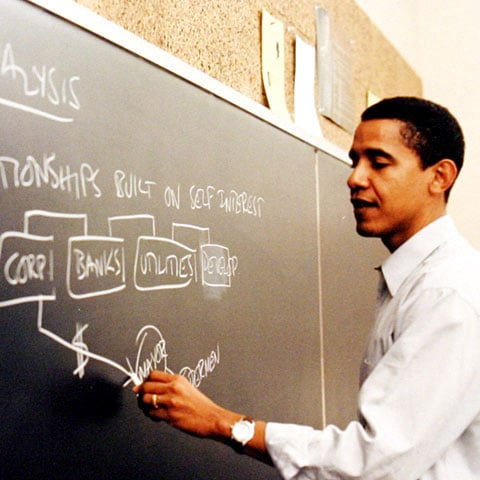 ALYSIS
TIONSHIPS BUILT ON SELF INTEREST
CORP BANKS UTILITIES DEVELOP
$ MAYOR